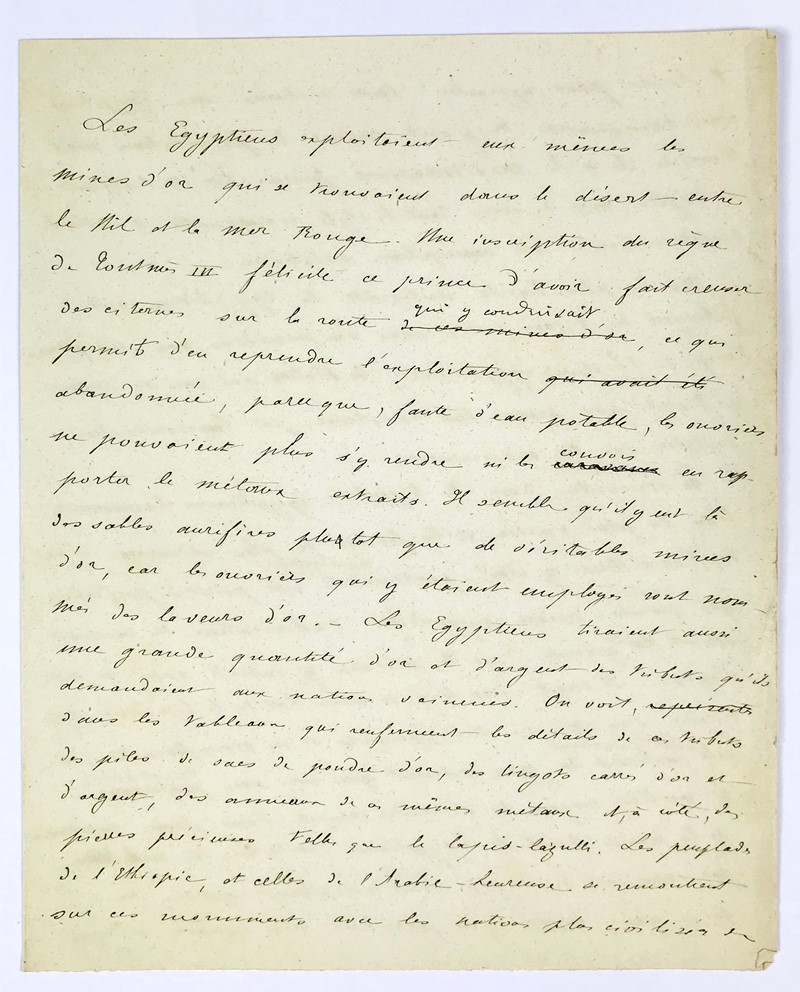 Les Egyptiens exploitaient eux-mêmes les
mines d'or qui se trouvaient dans le désert entre
le Nil et la mer Rouge. Une inscription du règne
de Toutmès III félicite ce prince d'avoir fait creuser
qui y conduisait
des citernes sur la route de ces mines d'or, ce qui
permit d'en reprendre l'exploitation qui avait été
abandonnée, parceque, faute d'eau potable, les ouvriers
ne pouvaient plus s'y rendre ni les caravanes en rap-
convois
porter le métaux extraits. Il semble qu'il y eut là
des sables aurifères plutot que de véritables mines
d'or, car les ouvriers qui y étaient employés sont nom-
més des laveurs d'or. — Les Egyptiens tiraient aussi
une grande quantité d'or et d'argent des tributs qu'ils
demandaient aux nations vaincues. On voit, représentés
dans les tableaux qui renferment les détails de ces tributs
des piles de sacs de poudre d'or, des lingots carrés d'or et
d'argent, des anneaux de ces mêmes métaux et, à côté, des
pierres précieuses telles que le lapis-lazulli. Les peuplades
de l'Ethiopie, et celles de l'Arabie-heureuse se
sur ces monuments avec les nations plus civilisées